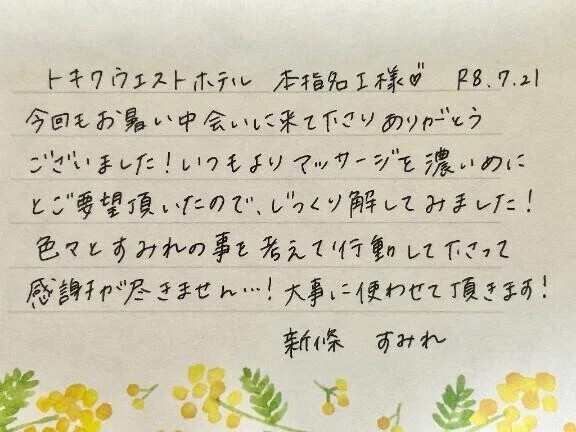 トキワウエストホテル 本指名I様♡ R8.7.21
今回もお暑い中会いに来て下さりありがとう
ございました!いつもよりマッサージを濃いめに
とご要望頂いたので、じっくり解してみました!
色々とすみれの事を考えて行動して下さって
感謝が尽きません…!大事に使わせて頂きます!
新條 すみれ